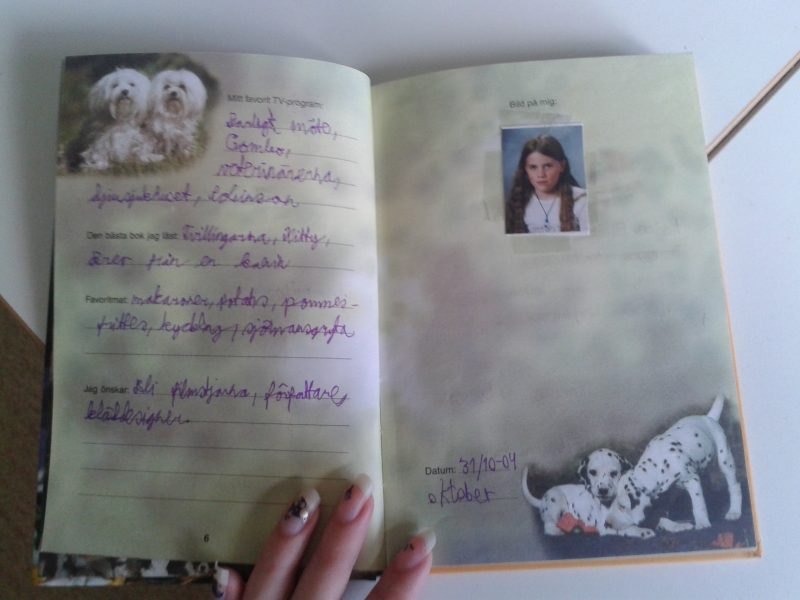 Mitt favorit TV-program:
Farligt möte,
Combo,
veterinärerna,
djursjukhuset, robinson
Den bästa bok jag läst: Tvillingarna, Kitty,
Brev från en
Favoritmat: makaroner, potatis, pommes-
frittes, kyckling, sjömansgryta
Jag önskar: Bli filmstjärna, författare,
kläddesigner.
6
Bild på mig:
Datum: 31/10-04
oktober